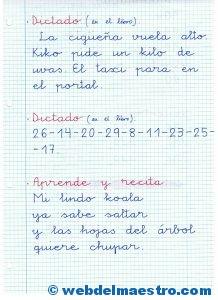 · Dictado (en el libro)
La cigueña vuela alto.
Kiko pide un kilo de
uvas. El taxi para en
el portal.
· Dictado (en el libro)
26-14-20-29-8-11-23-25-
-17.
· Aprende y recita
Mi lindo koala
ya sabe saltar
y las hojas del árbol
quiere chupar.
© webdelmaestro.com